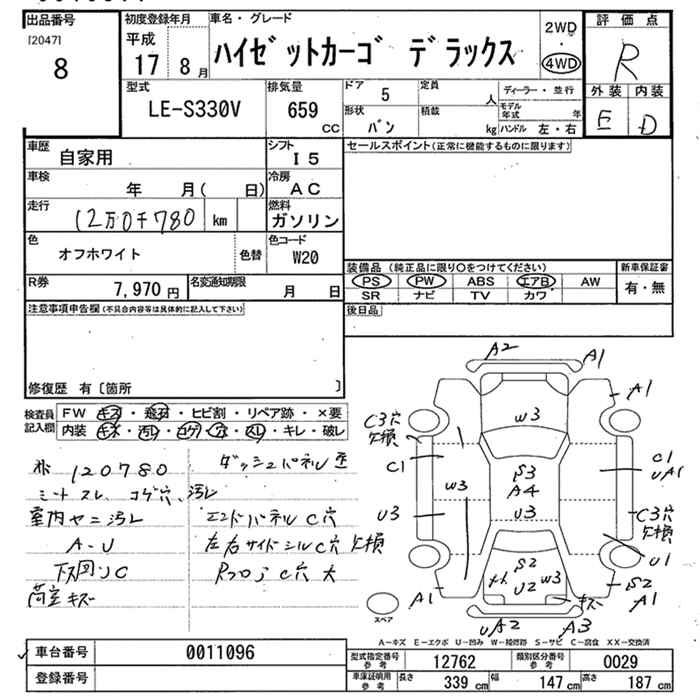 出品番号 初度登録年月 車名・グレード
[2047] 8
平成 17 8月
ハイゼットカーゴ デラックス
2WD・4WD
評価点 R
外装 内装
E D
型式 LE-S330V
排気量 659 cc
ドア 5 定員 人
形状 バン 積載 kg
ディーラー・並行
モデル年式 年
ハンドル 左・右
車歴 自家用
シフト I5
セールスポイント(正常に機能するものに限ります)
車検 年 月( 日)
冷房 AC
走行 12万0千780 km
燃料 ガソリン
色 オフホワイト 色替
色コード W20
装備品 (純正品に限り○をつけてください) 新車保証書
PS PW ABS エアB AW 有・無
SR ナビ TV カワ
R券 7,970円
名変通知期限 月 日
後日品
注意事項申告欄(不具合内容等は具体的に記入して下さい)
修復歴 有[箇所 ]
検査員記入欄
FW キズ・飛石・ヒビ割・リペア跡・×要
内装 キズ・汚レ・コゲ・穴・スレ・キレ・破レ
120780
シートスレ コゲ穴、汚レ
室内ヤニ汚レ
A-U
下回リC
荷室キズ
エンドパネルC穴
左右サイドシルC穴欠損
C穴大
A2
A1
A1
W3
C3穴欠損
C1
C1
UA1
S3
A4
W3
U3
U3
C3穴欠損
U1
S2
U2
W3
S2
A1
A1
キズ
UA2
A3
スペア
A-キズ E-エクボ U-凹み W-補修跡 S-サビ C-腐食 XX-交換済
車台番号 0011096
登録番号
型式指定番号参考 12762
類別区分番号参考 0029
車庫証明用参考 長さ 339cm 幅 147cm 高さ 187cm